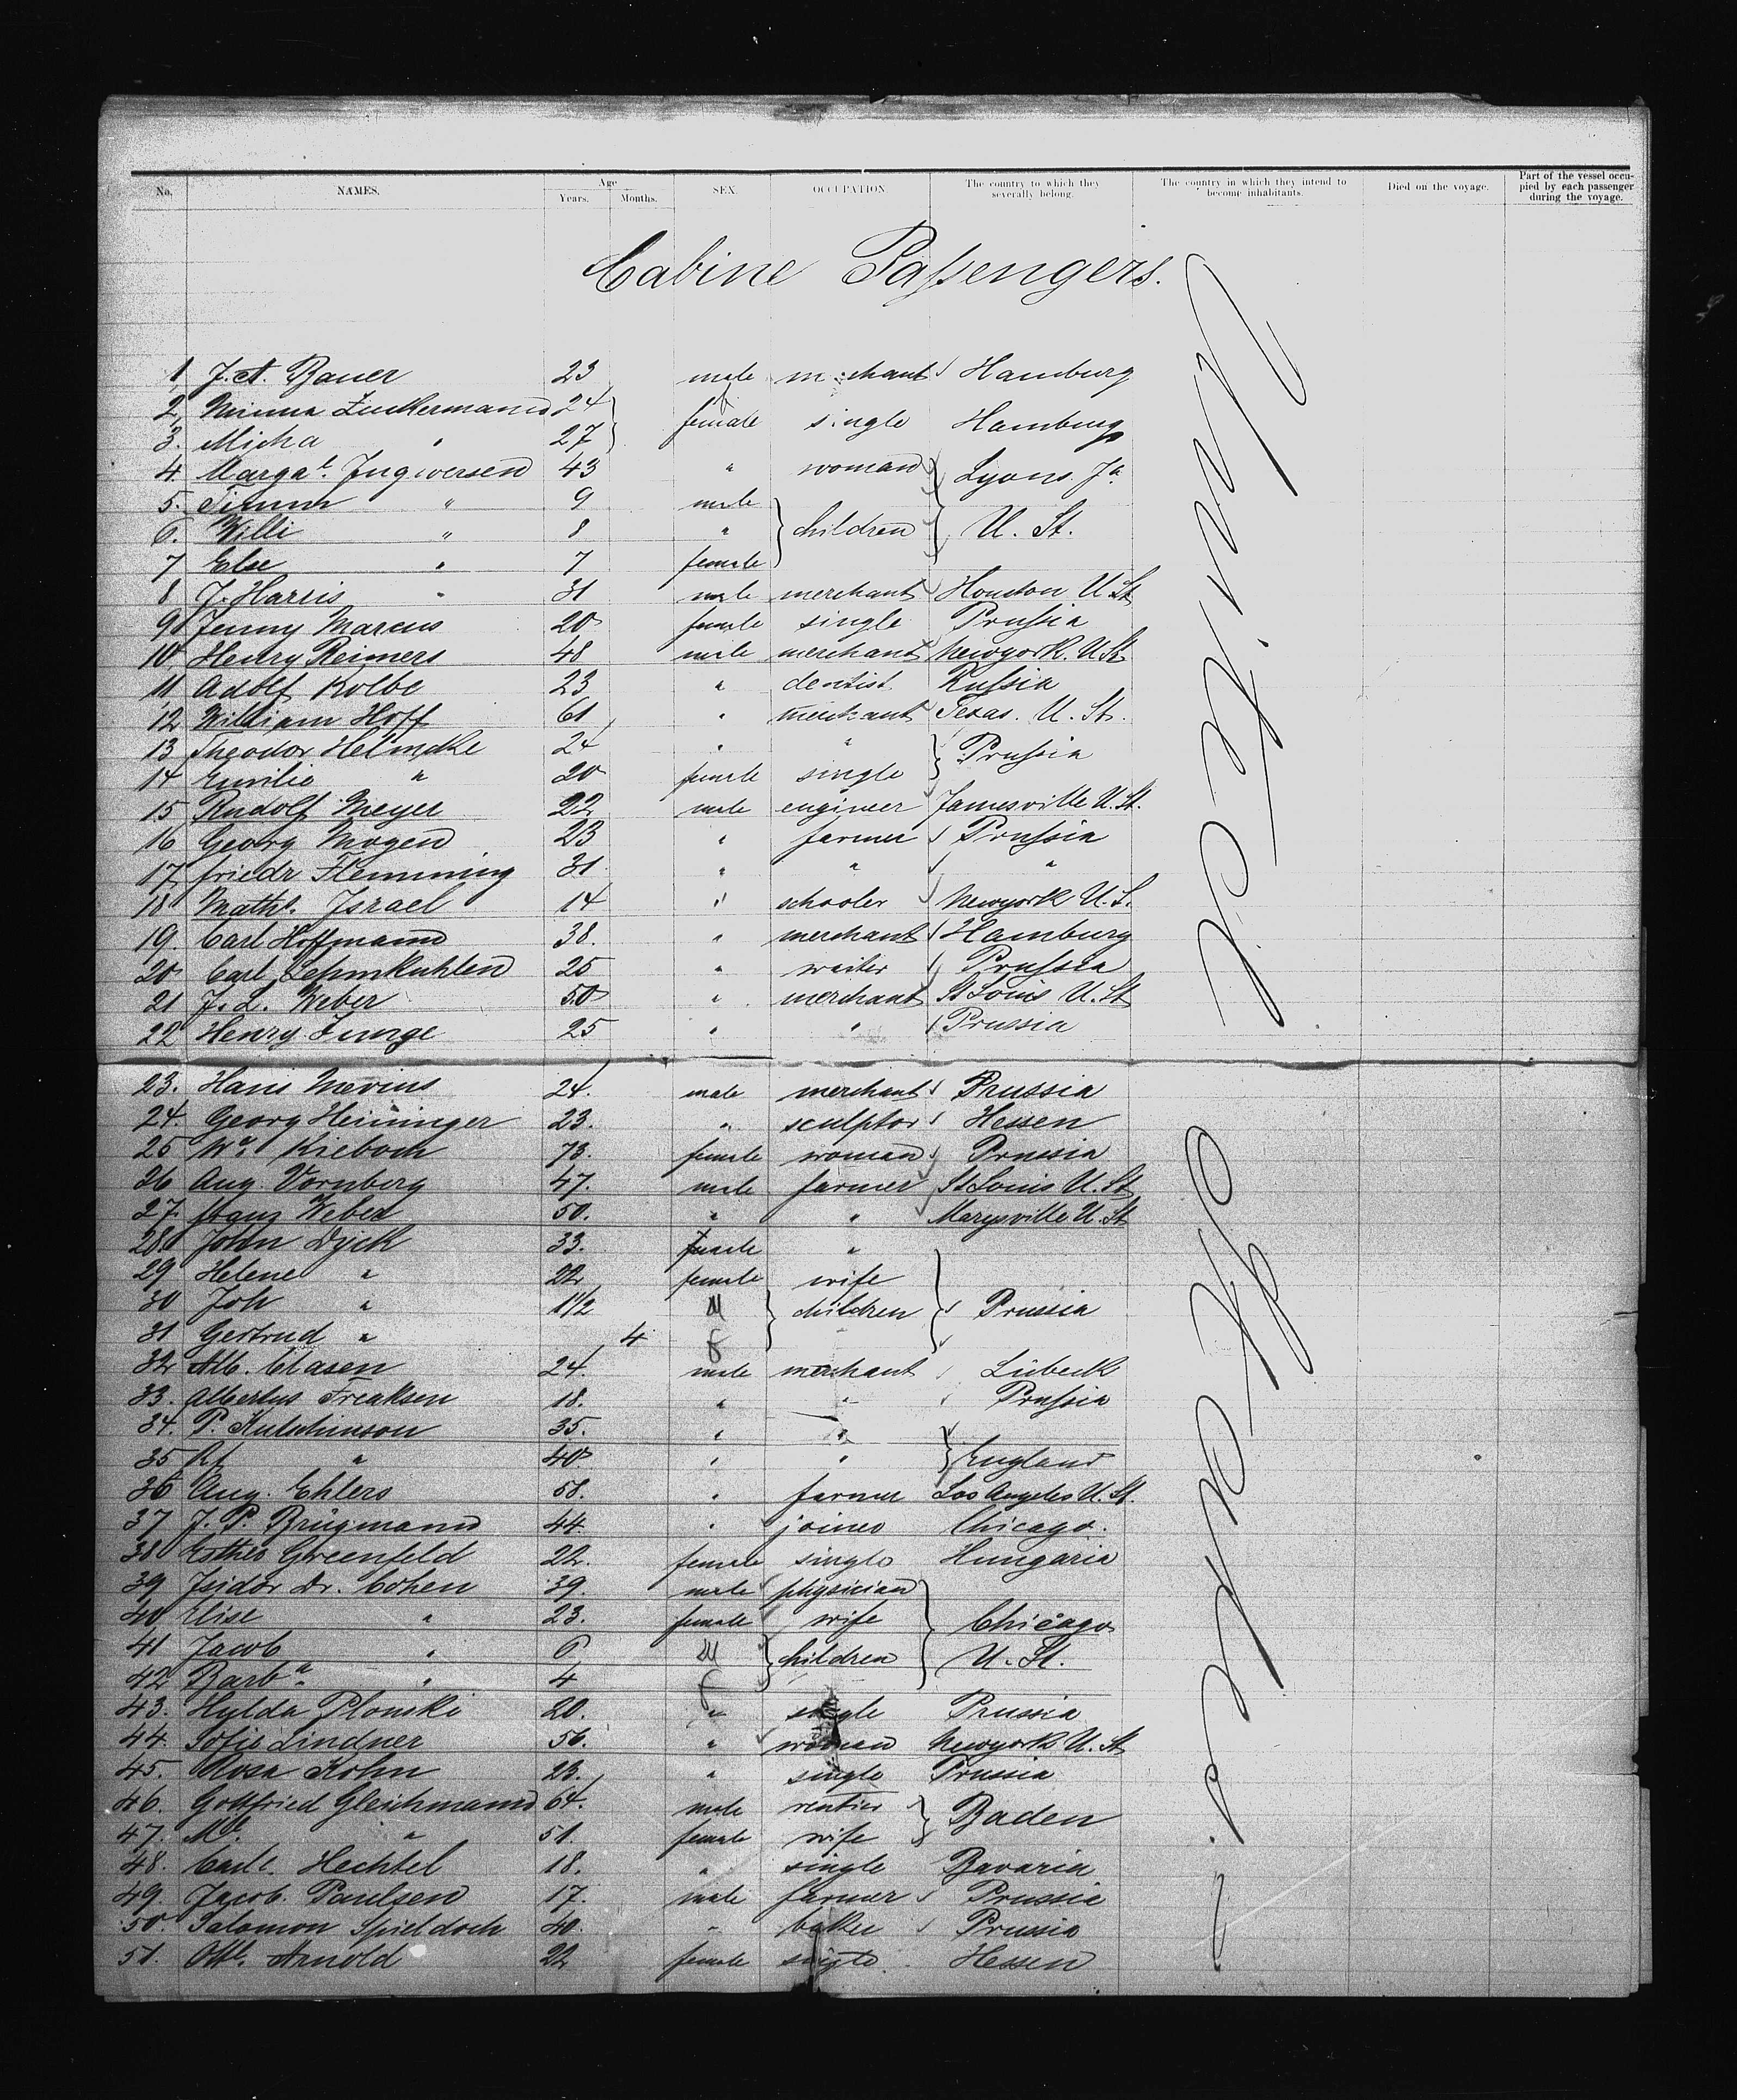 No. NAMES. Age Years. Months. SEX. OCCUPATION The country to which they severally belong. The country in which they intend to become inhabitants. Died on the voyage. Part of the vessel occupied by each passenger during the voyage.
Cabine Passengers.
1, J. A. Bauer 23 male merchant Hamburg
2, Minna Zuckermann 24 female single Hamburg
3. Micha " 27
4. Margat. Ingwersen 43 " woman Lyons Ja.
5. Timm " 9 male
6. Willi " 8 " children U. St.
7 Else " 7 female
8 J. Harris " 31 male merchant Houston U St
9 Jenny Marcus 20 female single Prussia
10 Henry Reimers 48 male merchant Newyork. U St
11 Adolf Kolbe 23 " dentist Russia
12 William Hoff 61 " merchant Texas. U. St.
13 Theodor Helmcke 24 " " Prussia
14 Emilie " 20 female single
15 Rudolf Meyer 22 male engineer Jamesville U. St.
16 Georg Mogen 23 " farmer Prussia
17 Friedr Flemming 31 " " "
18 Mathl. Israel 14 " schooler Newyork U. S.
19. Carl Hoffmann 38. " merchant Hamburg
20 Carl Lehmkuhlen 25 " waiter Prussia
21 J. L. Weber 50 " merchant St Louis U. St
22 Henry Junge 25 " " Prussia
23. Hans Nevius 24. male merchant Prussia
24. Georg Heininger 23. " sculptor Hessen
25 We. Kieboch 73. female woman Prussia
26 Aug. Vornberg 47. male farmer St Louis U. St
27. Franz Weber 50. " " Marysville U. St
28. John Dyck 33. male "
29 Helene " 22 female wife
30 Joh " 1 1/2 M children Prussia
31 Gertrud " 4 f
32 Alb. Clasen 24. male merchant Lübeck
33. Albertus Freaksen 18. " " Prussia
34. P. Hutchinson 35. " "
35 Rf " 40 " " England
36 Aug. Ehlers 58. " farmer Los Angeles U. St.
37 J. P. Brügmann 44 " joiner Chicago.
38 Esther Greenfeld 22. female single Hungaria
39 Isidor Dr. Cohen 39. male physician
40 Elise " 23. female wife Chicago
41 Jacob " 6 M children U. St.
42 Barba. " 4 f
43. Hylda Plonski 20. " single Prussia
44. Sofie Lindner 56. " woman Newyork U. St
45. Rosa Kohn 23. " single Prussia
46. Gottfried Gleichmann 64. male rentier Baden
47. " 51. female wife
48. Carl. Hechtel 18. " single Bavaria
49. Jacob. Paulsen 17. male farmer Prussia
50. Salomon Spieldoch 40. " baker Prussia
51. Ottl. Arnold 22 female single Hessen
United States of North America